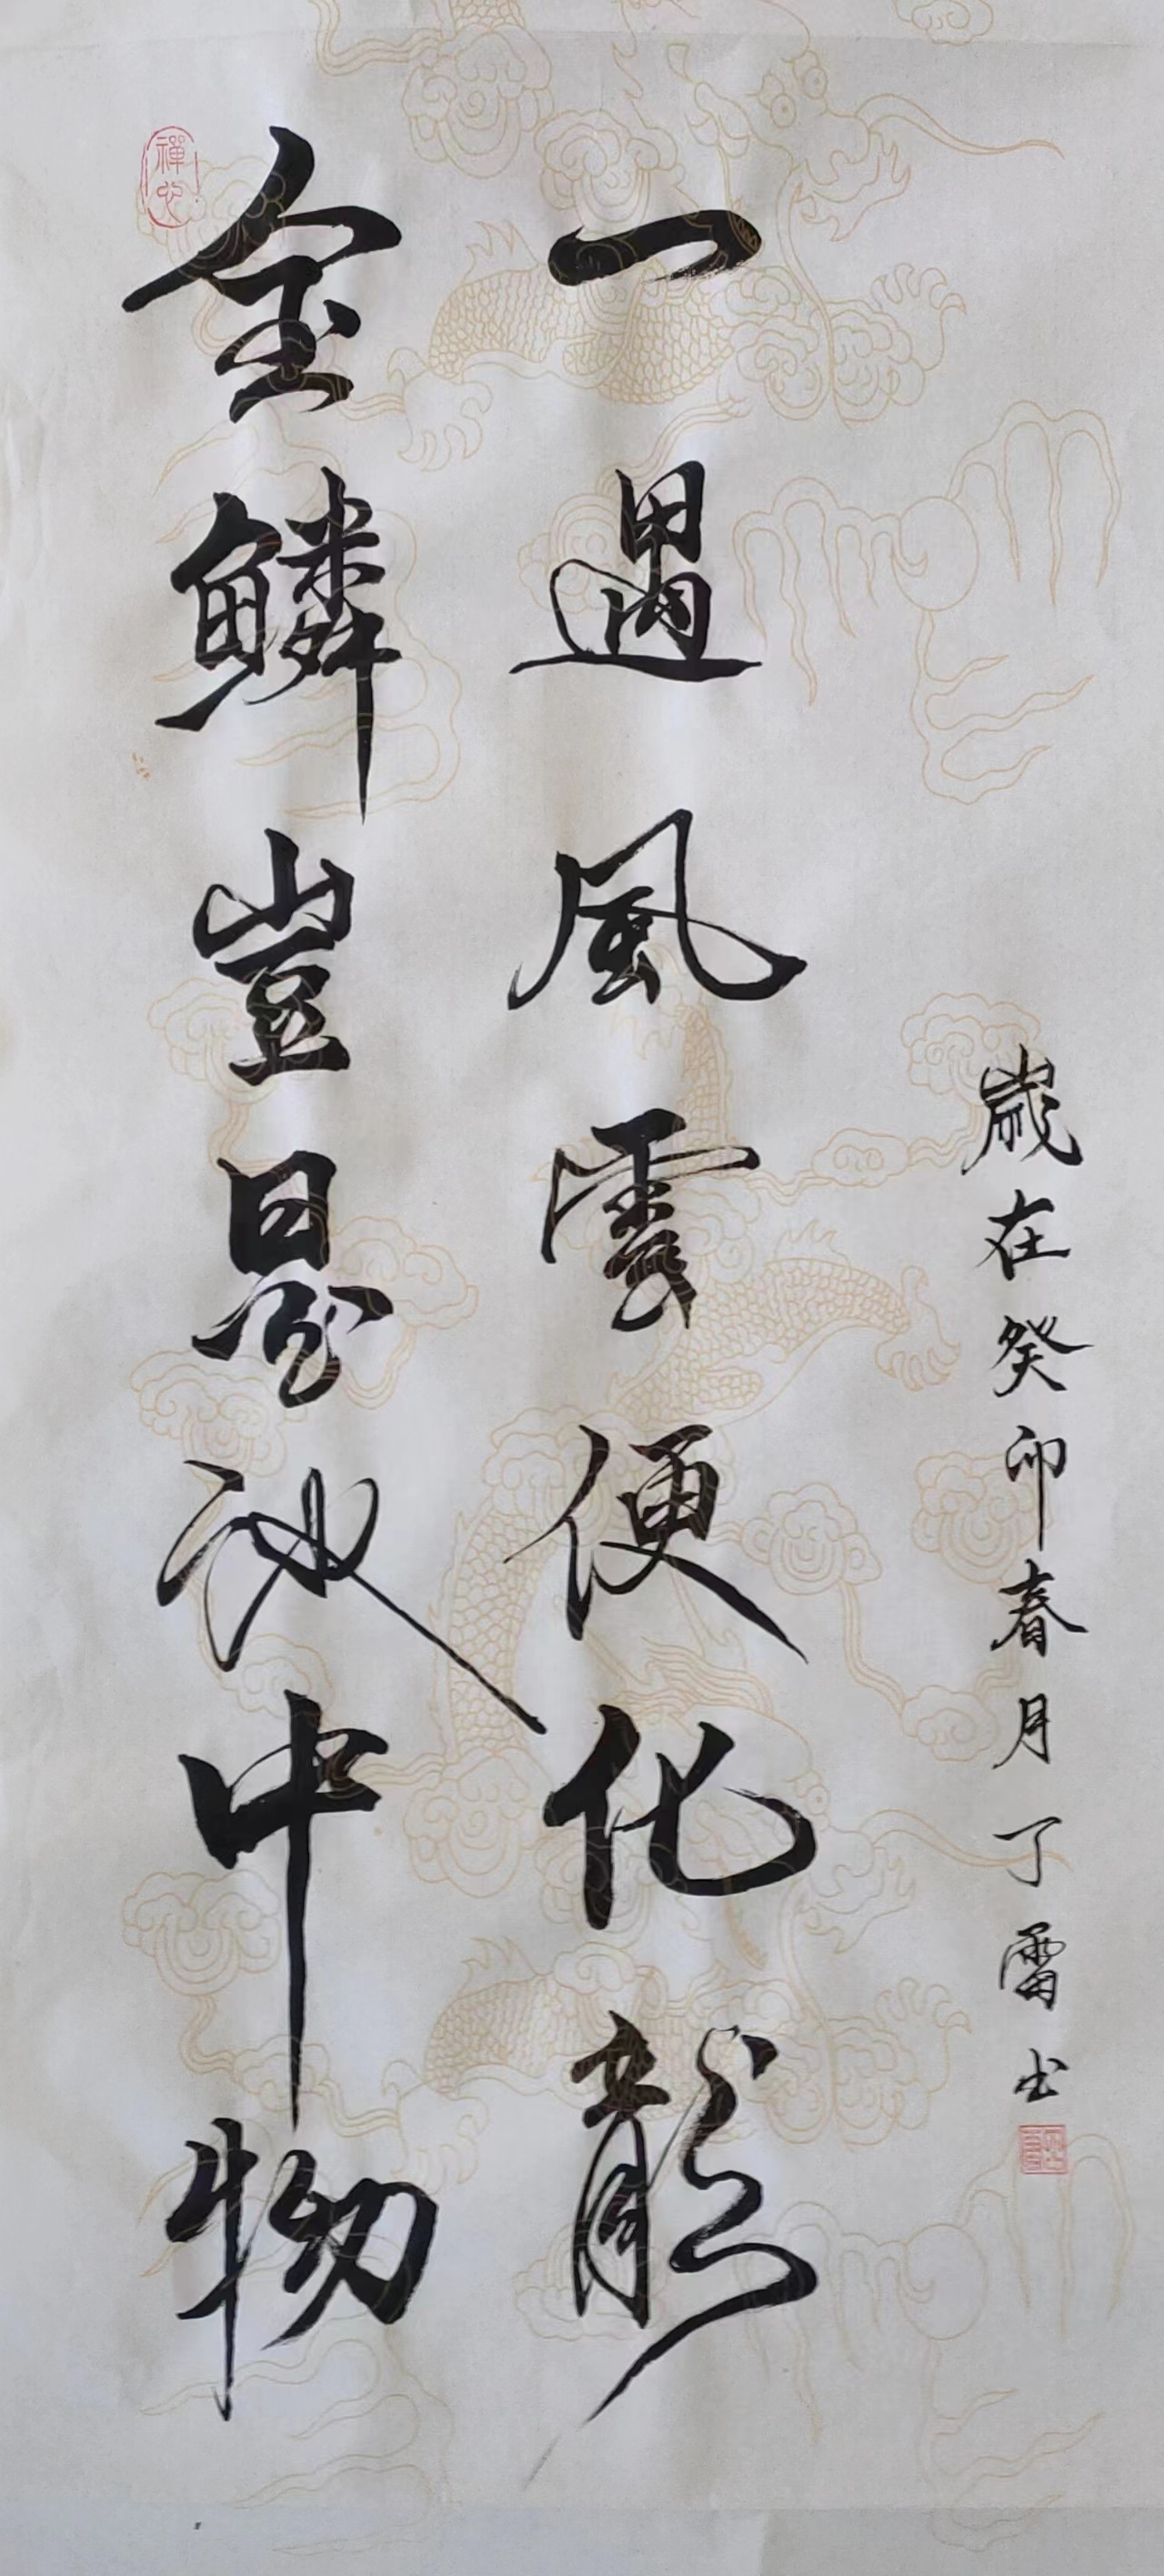 禪心
金鱗豈是池中物
一遇風雲便化龍
歲在癸卯春月丁雷书